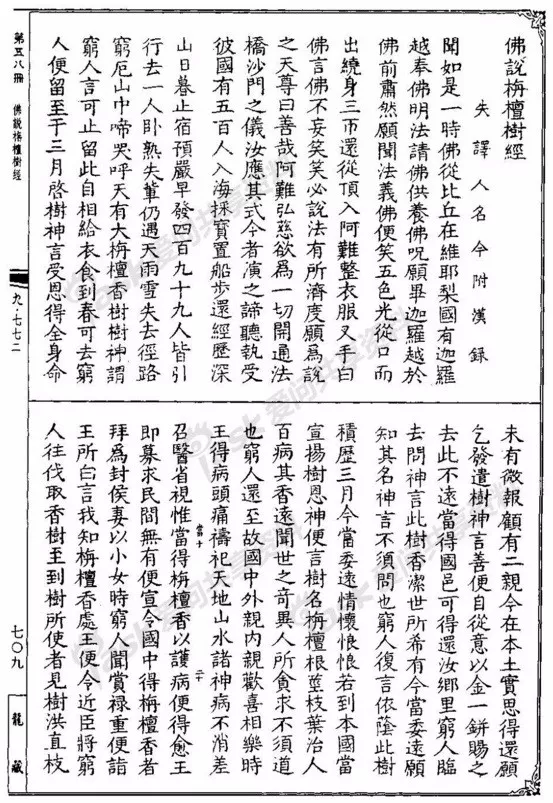 佛說栴檀樹經
失譯人名今附漢錄
聞如是一時佛從比丘在維耶梨國有迦羅
越奉佛明法請佛供養佛呪願畢迦羅越於
佛前肅然願聞法義佛便笑五色光從口而
出繞身三帀還從頂入阿難整衣服叉手白
佛言佛不妄笑笑必說法有所濟度願爲說
之天尊曰善哉阿難弘慈欲爲一切開通法
橋沙門之儀汝應其式今者演之諦聽執受
彼國有五百人入海採寶置船步還經歷深
山日暮止宿預嚴早發四百九十九人皆引
行去一人卧熟失輩仍遇天雨雪失去徑路
窮厄山中啼哭呼天有大栴檀香樹樹神謂
窮人言可止留此自相給衣食到春可去窮
人便留至于三月啓樹神言受恩得全身命
未有微報顧有二親今在本土實思得還願
乞發遣樹神言善便自從意以金一鉼賜之
去此不遠當得國邑可得還汝鄉里窮人臨
去問神言此樹香潔世所希有今當委遠願
知其名神言不須問也窮人復言依蔭此樹
積歷三月今當委遠情懷悢悢若到本國當
宣揚樹恩神便言樹名栴檀根莖枝葉治人
百病其香遠聞世之奇異人所貪求不須道
也窮人還至故國中外親內親歡喜相樂時
王得病頭痛禱祀天地山水諸神病不消差
召醫省視惟當得栴檀香以護病便得愈王
即募求民間無有便宣令國中得栴檀香者
拜爲封侯妻以小女時窮人聞賞祿重便詣
王所白言我知栴檀香處王便令近臣將窮
人往伐取香樹至到樹所使者見樹洪直枝
第五八冊 佛說栴檀樹經
九·七七二
七〇九
龍藏
爱问共享资料